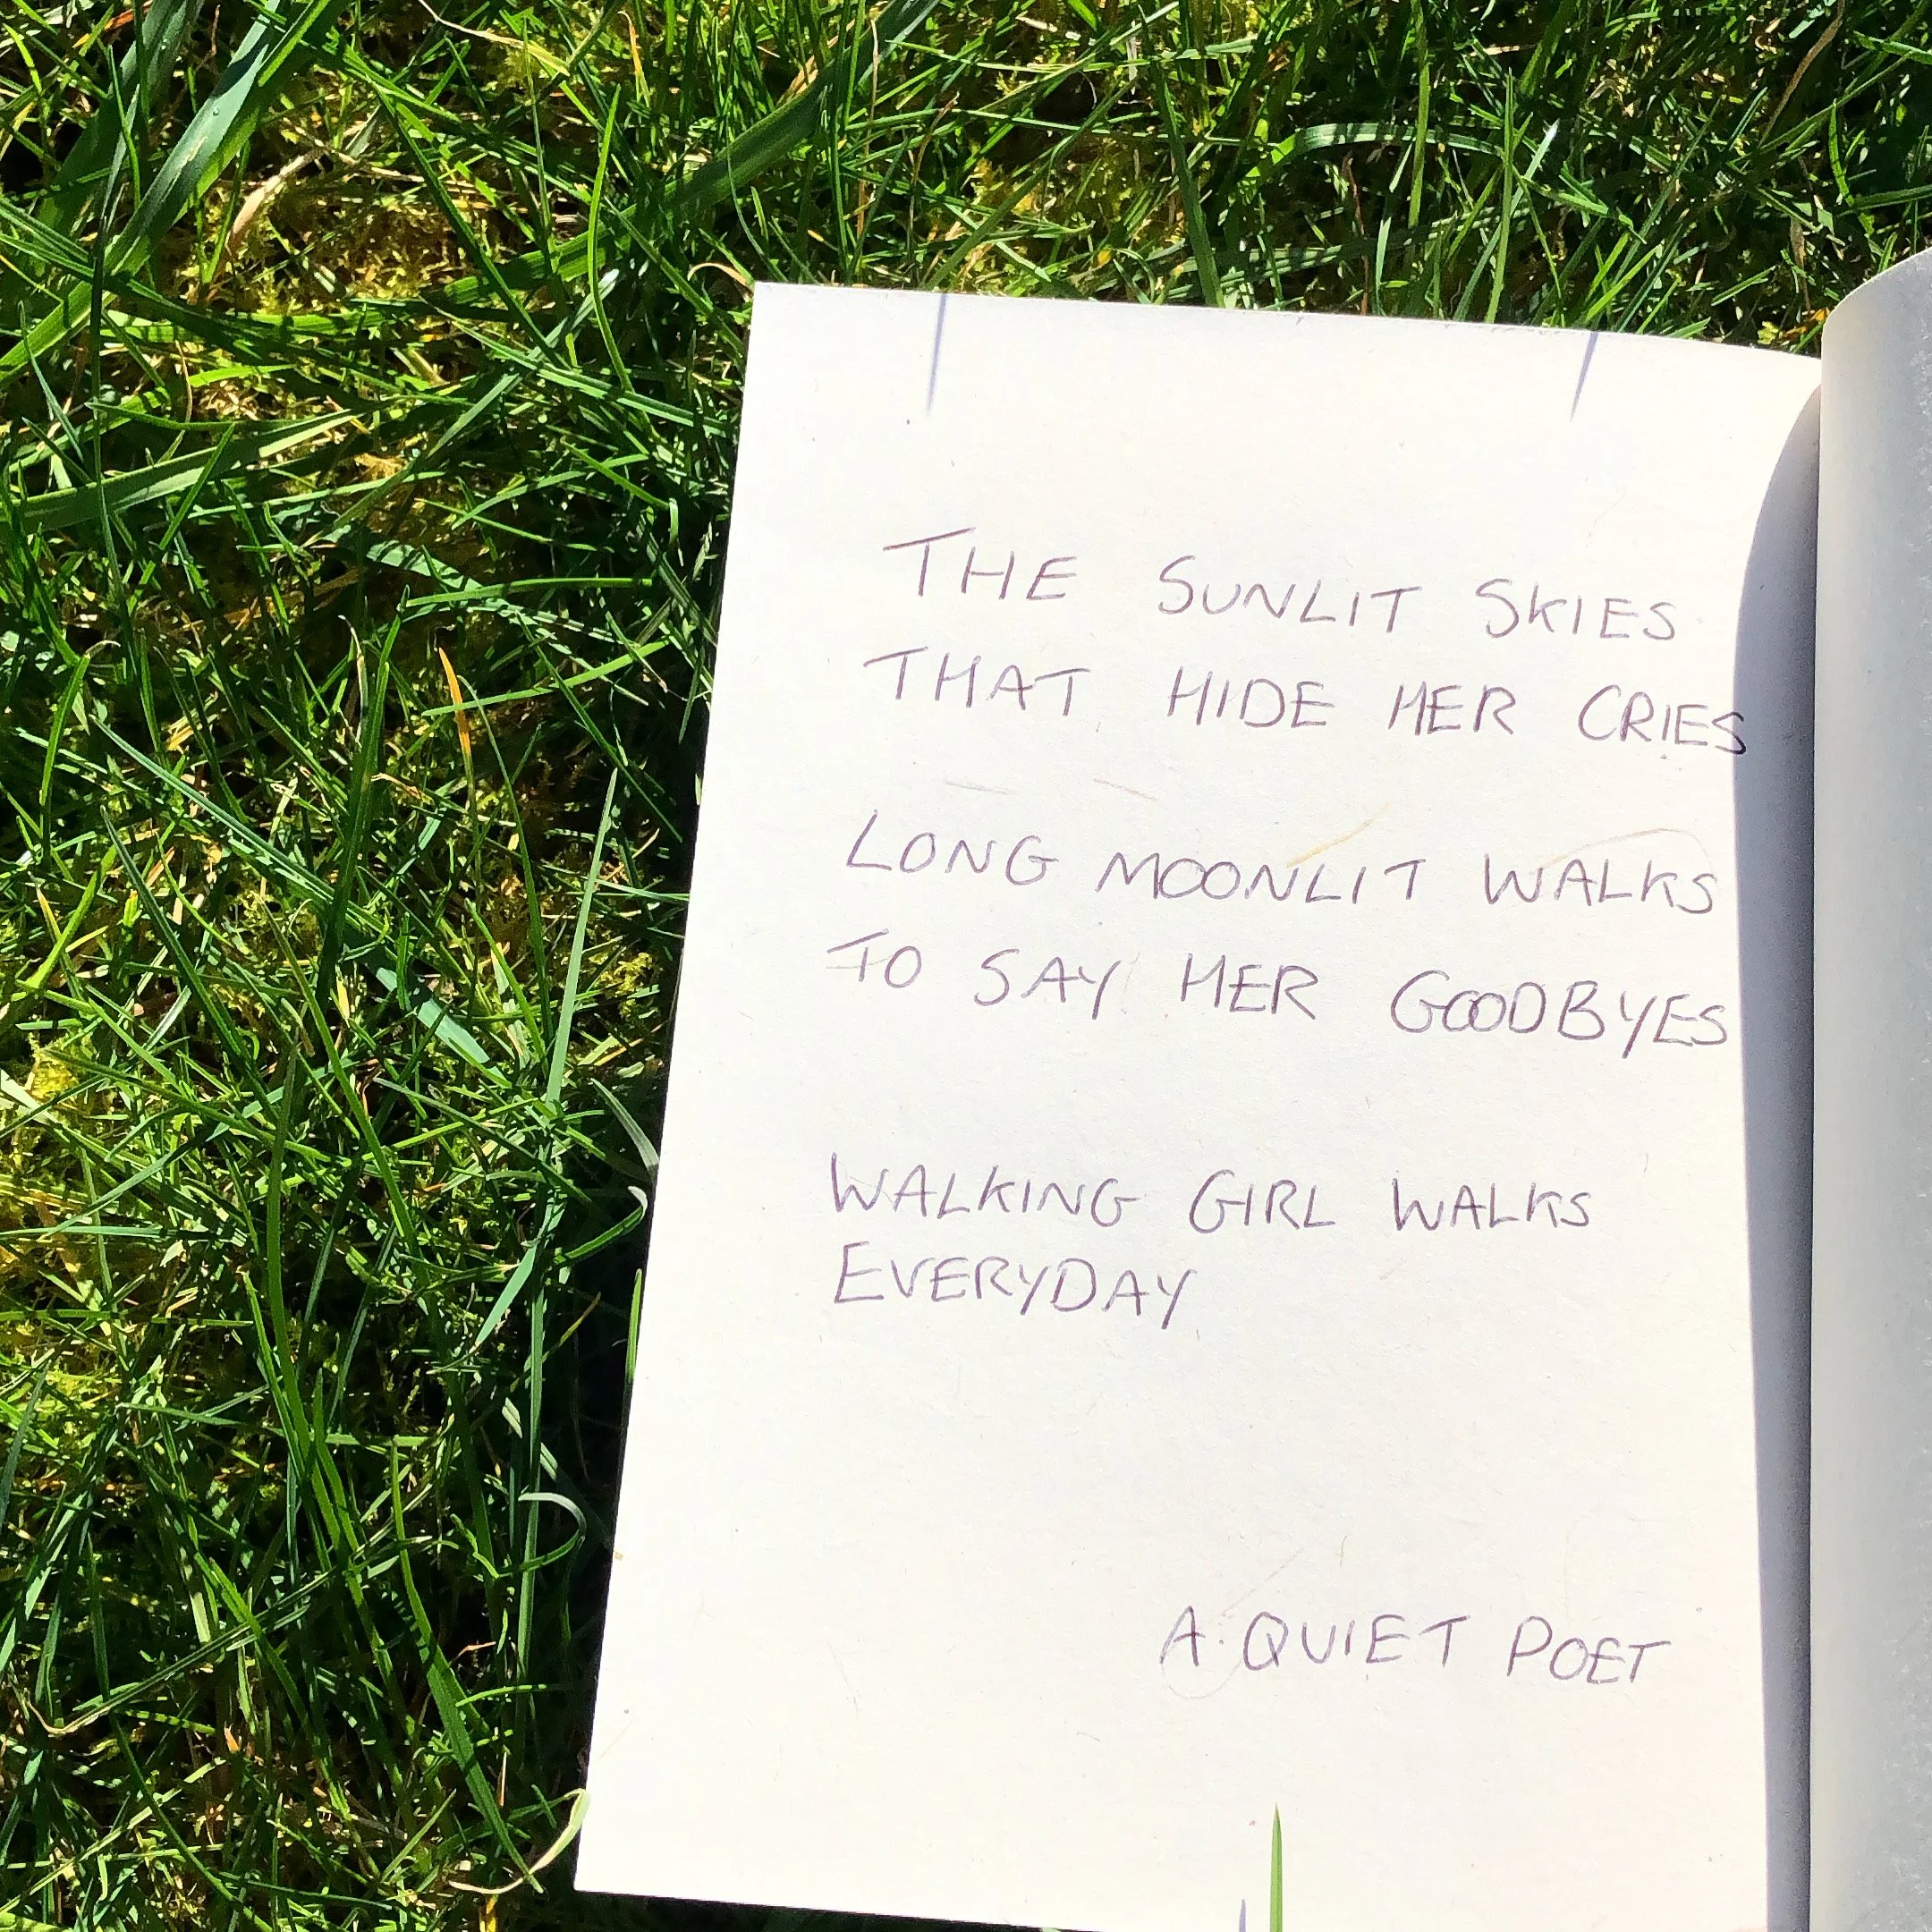 THE SUNLIT SKIES
THAT HIDE HER CRIES
LONG MOONLIT WALKS
TO SAY HER GOODBYES
WALKING GIRL WALKS
EVERYDAY
A QUIET POET